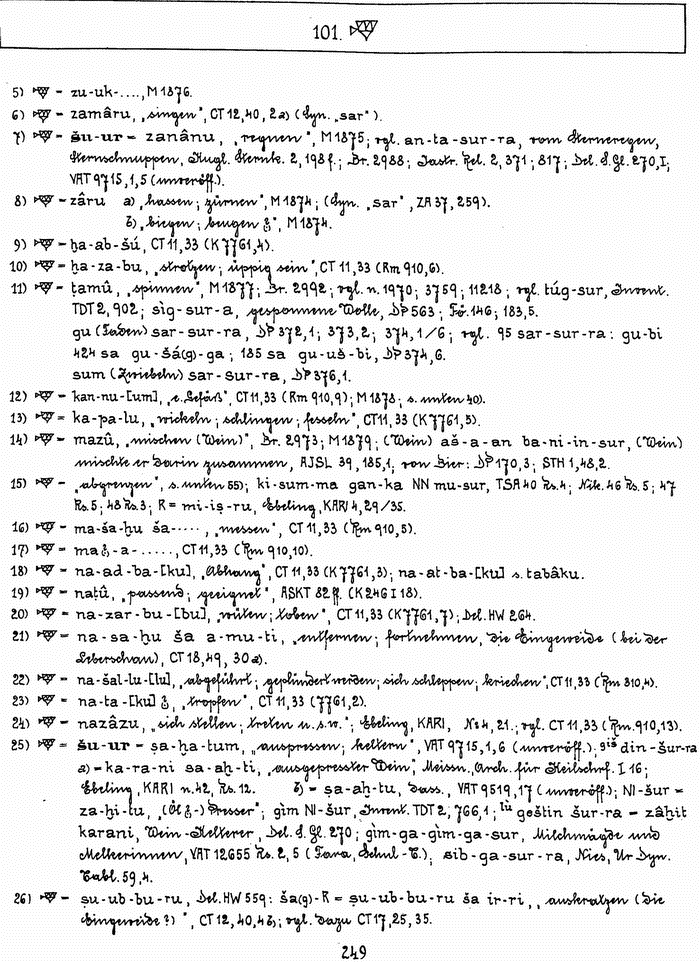 101. 𒋩
5) 𒋩 = zu-uk-...., M 1876.
6) 𒋩 = zamâru, „singen", CT 12, 40, 2a) (Syn. „sar").
7) 𒋩 = šu-ur = zanânu, „regnen", M 1875; vgl. an-ta-sur-ra, vom Sternenregen,
Sternschnuppen, Kugl. Sternk. 2, 198 f.; Br. 2988; Jastr. Rel. 2, 371; 817; Del. S. Gl. 270, I;
VAT 9715, 1, 5 (unveröff.).
8) 𒋩 = zâru a) „hassen; zürnen", M 1874; (Syn. „sar", ZA 37, 259).
b) „biegen; beugen", M 1874.
9) 𒋩 = ḫa-ab-šú, CT 11, 33 (K 7761, 4).
10) 𒋩 = ḫa-za-bu, „strotzen; üppig sein", CT 11, 33 (Rm 910, 6).
11) 𒋩 = ṭamû, „spinnen", M 1877; Br. 2992; vgl. n. 1970; 3759; 11218; vgl. túg-sur, Invent.
TDT 2, 902; sìg-sur-a, gesponnene Wolle, DP 563; Fö. 146; 183, 5.
gu (Faden) sar-sur-ra, DP 372, 1; 373, 2; 374, 1/6; vgl. 95 sar-sur-ra: gu-bi
424 sa gu-šá(g)-ga; 185 sa gu-uš-bi, DP 374, 6.
sum (Zwiebeln) sar-sur-ra, DP 376, 1.
12) 𒋩 = kan-nu-[um], „e. Gefäß", CT 11, 33 (Rm 910, 9); M 1878; s. unten 40).
13) 𒋩 = ka-pa-lu, „wickeln; schlingen; fesseln", CT 11, 33 (K 7761, 5).
14) 𒋩 = mazû, „mischen (Wein)", Br. 2973; M 1879; (Wein) aš-a-an ba-ni-in-sur, (Wein)
mischte er darin zusammen, AJSL 39, 185, 1; von Bier: DP 170, 3; STH 1, 48, 2.
15) 𒋩 = „abgrenzen", s. unten 55); ki-sum-ma gan-ka NN mu-sur, TSA 40 Rs. 4; Nik. 46 Rs. 5; 47
Rs. 5; 48 Rs. 3; R = mi-iṣ-ru, Ebeling, KARI 4, 29/35.
16) 𒋩 = ma-ša-ḫu ša-....., „messen", CT 11, 33 (Rm 910, 5).
17) 𒋩 = ma-a-....., CT 11, 33 (Rm 910, 10).
18) 𒋩 = na-ad-ba-[ku], „Abhang", CT 11, 33 (K 7761, 3); na-at-ba-[ku] s. tabâku.
19) 𒋩 = naṭû, „passend; geeignet", ASKT 82 ff. (K 246 I 18).
20) 𒋩 = na-zar-bu-[bu], „wüten; toben", CT 11, 33 (K 7761, 7); Del. HW 264.
21) 𒋩 = na-sa-ḫu ša a-mu-ti, „entfernen; fortnehmen, die Eingeweide (bei der
Leberschau), CT 18, 49, 30a).
22) 𒋩 = na-šal-lu-[lu], „abgeführt; geplündert werden; sich schleppen; kriechen", CT 11, 33 (Rm 310, 4).
23) 𒋩 = na-ta-[ku], „tropfen", CT 11, 33 (7761, 2).
24) 𒋩 = nazâzu, „sich stellen; treten u. s. w."; Ebeling, KARI, No 4, 21.; vgl. CT 11, 33 (Rm. 910, 13).
25) 𒋩 = šu-ur = ṣa-ḫa-tum, „auspressen; keltern", VAT 9715, 1, 6 (unveröff.). gišdin-šur-ra
a) = ka-ra-ni sa-aḫ-ti, „ausgepresster Wein", Meissn., Arch. für Keilschrf. I 16;
Ebeling, KARI n. 42, Rs. 12. b) = ṣa-aḫ-tu, dass., VAT 9519, 17 (unveröff.); NI-šur =
za-ḫi-tu, „(Öl-) Presser"; gìm NI-šur, Invent. TDT 2, 766, 1; lù geštin šur-ra = zâḫit
karani, Wein-Kelterer, Del. S. Gl. 270; gìm-ga-gìm-ga-sur, Milchmägde und
Melkerinnen, VAT 12655 Rs. 2, 5 (Fara, Schul-T.); sib-ga-sur-ra, Nies, Ur Dyn.
Tabl. 59, 4.
26) 𒋩 = ṣu-ub-bu-ru, Del. HW 559: ša(g)-R = ṣu-ub-bu-ru ša ir-ri, „auskratzen (die
Eingeweide?)", CT 12, 40, 4b; vgl. dazu CT 17, 25, 35.
249